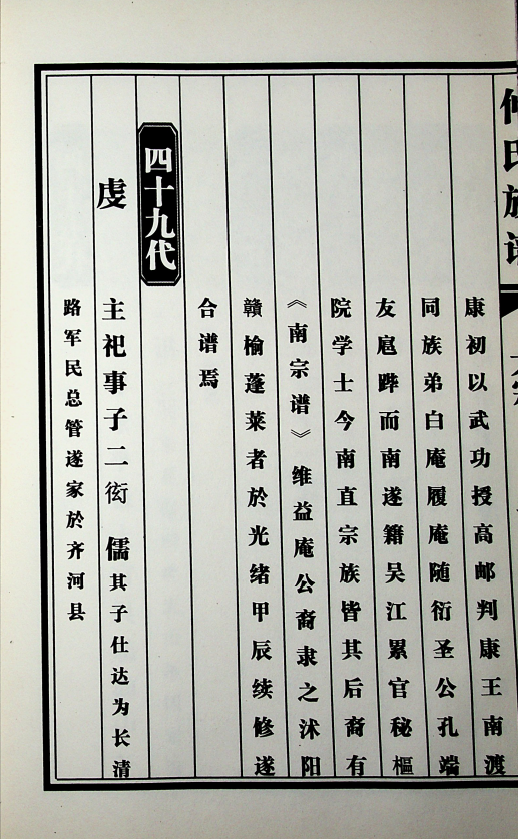 氏族
康初以武功授高邮判康王南渡
同族弟白庵履庵随衍圣公孔端
友扈跸而南遂籍吴江累官秘枢
院学士今南直宗族皆其后裔有
《南宗谱》维益庵公裔隶之沭阳
赣榆蓬莱者於光绪甲辰续修遂
合谱焉
四十九代
虔 主祀事子二 儒其子仕达为长清
路军民总管遂家於齐河县